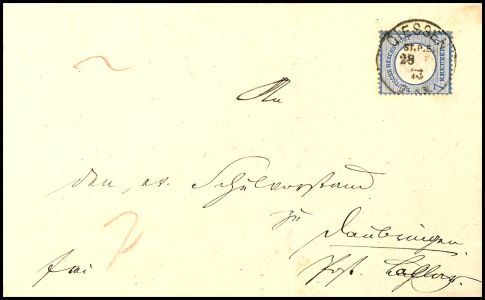 GIESSEN
ST.P.E.
28
73
DEUTSCHE REICHS-POST
7 KREUZER 7
An
den ev. Schulvorstand
zu
Daubringen
frei
Post Lollar
7